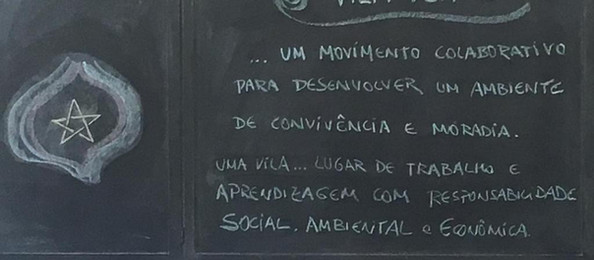 ... UM MOVIMENTO COLABORATIVO
PARA DESENVOLVER UM AMBIENTE
DE CONVIVÊNCIA E MORADIA.
UMA VILA... LUGAR DE TRABALHO E
APRENDIZAGEM COM RESPONSABILIDADE
SOCIAL, AMBIENTAL e ECONÔMICA.